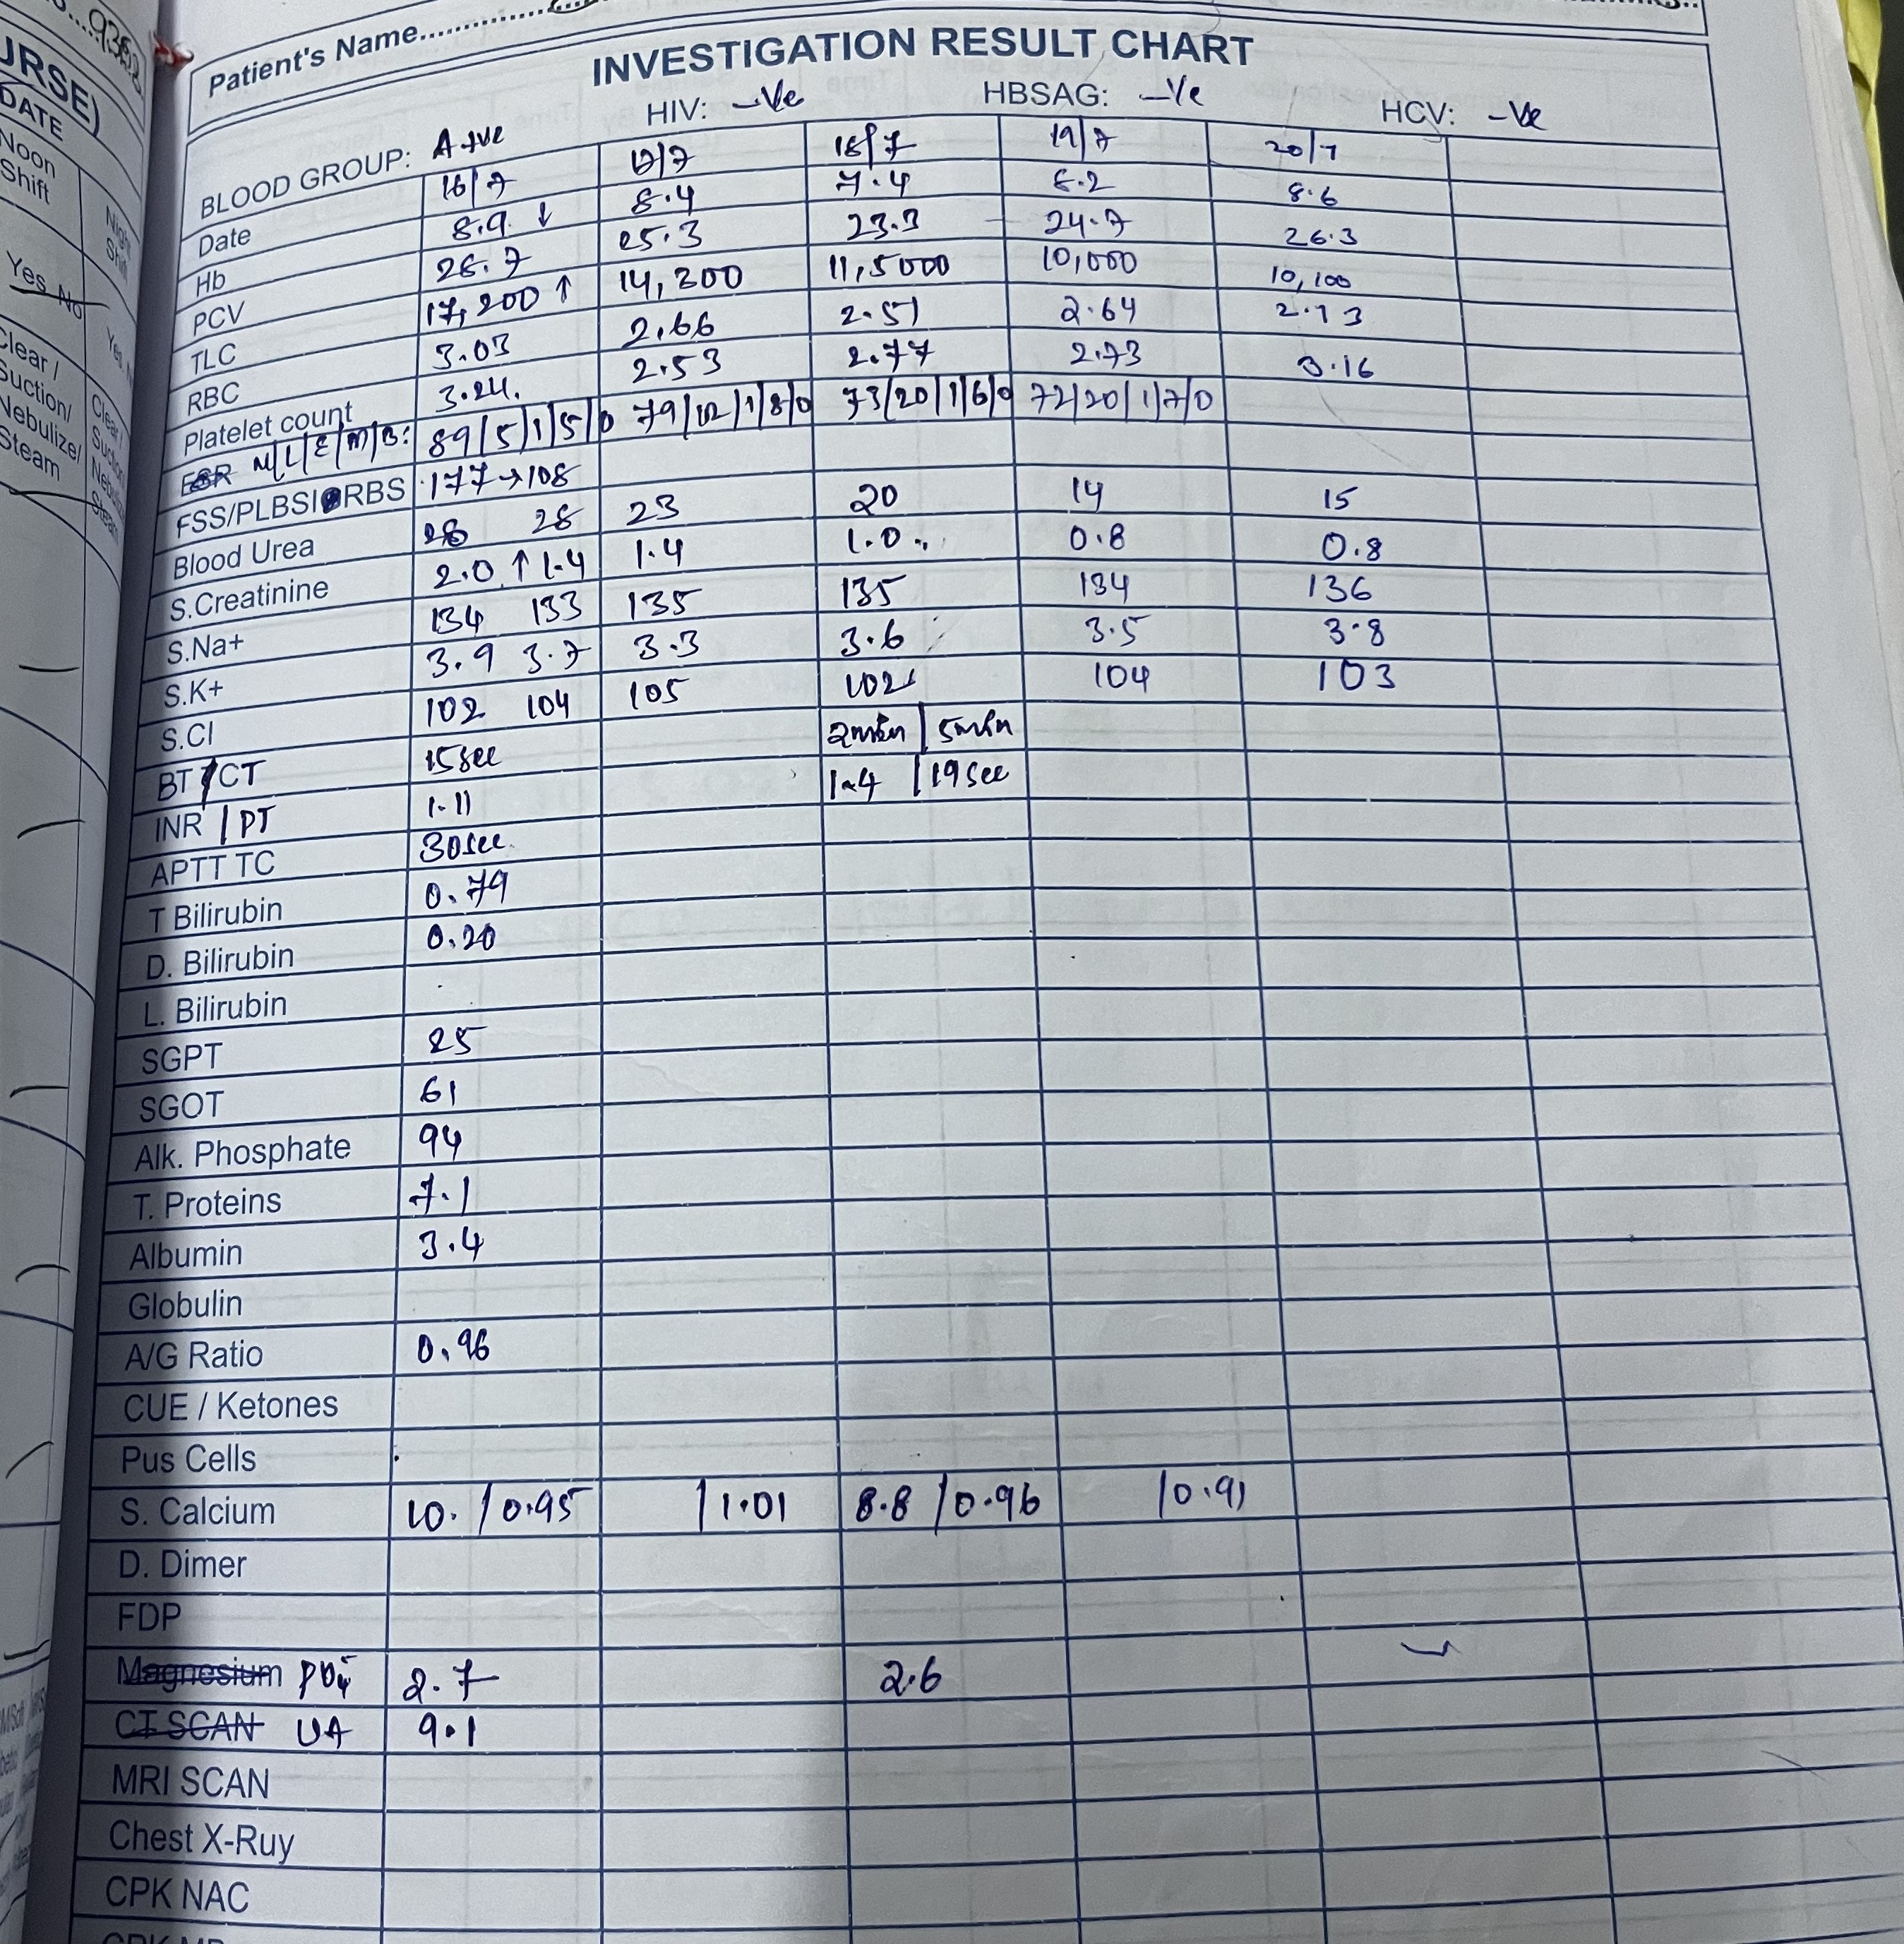 Patient's Name
INVESTIGATION RESULT CHART
BLOOD GROUP: A +ve HIV: -Ve HBSAG: -Ve HCV: -Ve
Date 16/7 17/7 18/7 19/7 20/7
Hb 8.9 ↓ 8.4 7.4 8.2 8.6
PCV 26.7 25.3 23.3 24.7 26.3
TLC 17,200 ↑ 14,200 11,5000 10,000 10,100
RBC 3.03 2.66 2.51 2.64 2.73
Platelet count 3.24. 2.53 2.77 2.73 3.16
ESR N/L/E/M/B: 89/5/1/5/0 79/12/1/8/0 73/20/1/6/0 72/20/1/7/0
FSS/PLBSI RBS 177→108
Blood Urea 28 28 23 20 14 15
S.Creatinine 2.0 ↑ 1.4 1.4 1.0 0.8 0.8
S.Na+ 134 133 135 135 134 136
S.K+ 3.9 3.7 3.3 3.6 3.5 3.8
S.Cl 102 104 105 102 104 103
BT / CT 15sec 2min / 5min
INR / PT 1.11 1.4 / 19sec
APTT TC 30sec.
T Bilirubin 0.79
D. Bilirubin 0.20
L. Bilirubin
SGPT 25
SGOT 61
Alk. Phosphate 94
T. Proteins 7.1
Albumin 3.4
Globulin
A/G Ratio 0.96
CUE / Ketones
Pus Cells
S. Calcium 10. / 0.95 / 1.01 8.8 / 0.96 / 0.91
D. Dimer
FDP
Magnesium PO4 2.7 2.6
CT SCAN UA 9.1
MRI SCAN
Chest X-Ruy
CPK NAC
URSE)
DATE
Noon
Shift
Night
Yes No
Clear /
Suction/
Nebulize/
Steam